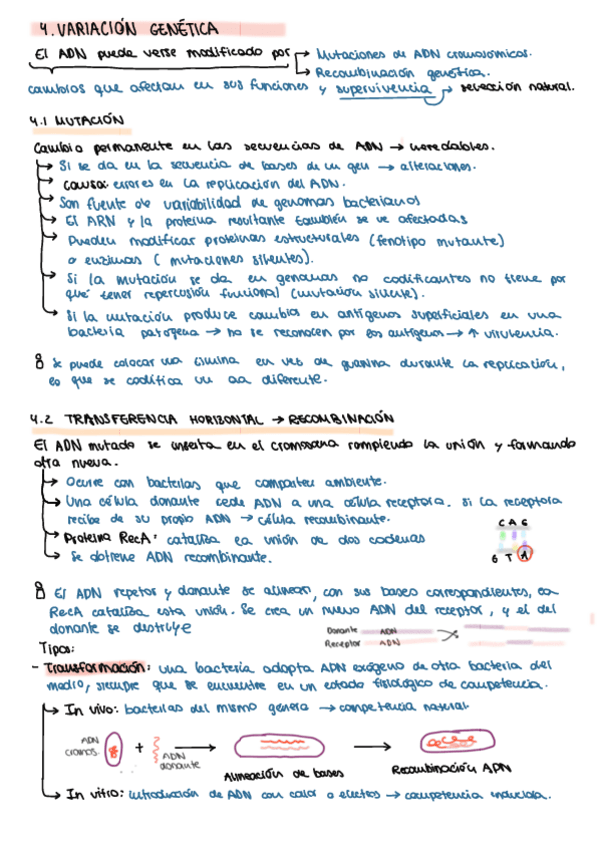 4. VARIACIÓN GENÉTICA
El ADN puede verse modificado por → Mutaciones de ADN cromosómicas.
→ Recombinación genética.
cambios que afectan en sus funciones y supervivencia → selección natural.
4.1 MUTACIÓN
Cambio permanente en las secuencias de ADN → heredables.
→ Si se da en la secuencia de bases de un gen → alteraciones.
→ Causa: errores en la replicación del ADN.
→ Son fuente de variabilidad de genomas bacterianos
→ El ARN y la proteína resultante también se ve afectadas
→ Pueden modificar proteínas estructurales (fenotipo mutante)
o enzimas (mutaciones silentes).
→ Si la mutación se da en genomas no codificantes no tiene por
qué tener repercusión funcional (mutación silente).
→ Si la mutación produce cambios en antígenos superficiales en una
bacteria patógena → no se reconocen por los antígenos → ↑ virulencia.
Se puede colocar una timina en vez de guanina durante la replicación,
lo que se codifica un aa diferente.
4.2 TRANSFERENCIA HORIZONTAL → RECOMBINACIÓN
El ADN mutado se inserta en el cromosoma rompiendo la unión y formando
otra nueva.
→ Ocurre con bacterias que comparten ambiente.
→ Una célula donante cede ADN a una célula receptora. Si la receptora
recibe de su propio ADN → célula recombinante.
→ Proteína RecA: cataliza la unión de dos cadenas
→ Se obtiene ADN recombinante.
C A G
G T A
El ADN repetor y donante se alinean, con sus bases correspondientes, la
RecA cataliza esta unión. Se crea un nuevo ADN del receptor, y el del
donante se destruye
Donante ADN
Receptor ADN
Tipos:
- Transformación: una bacteria adopta ADN exógeno de otra bacteria del
medio, siempre que se encuentre en un estado fisiológico de competencia.
→ In vivo: bacterias del mismo género → competencia natural
ADN cromos. + ADN donante → Alineación de bases → Recombinación ADN
→ In vitro: introducción de ADN con calor o electros → competencia inducida.